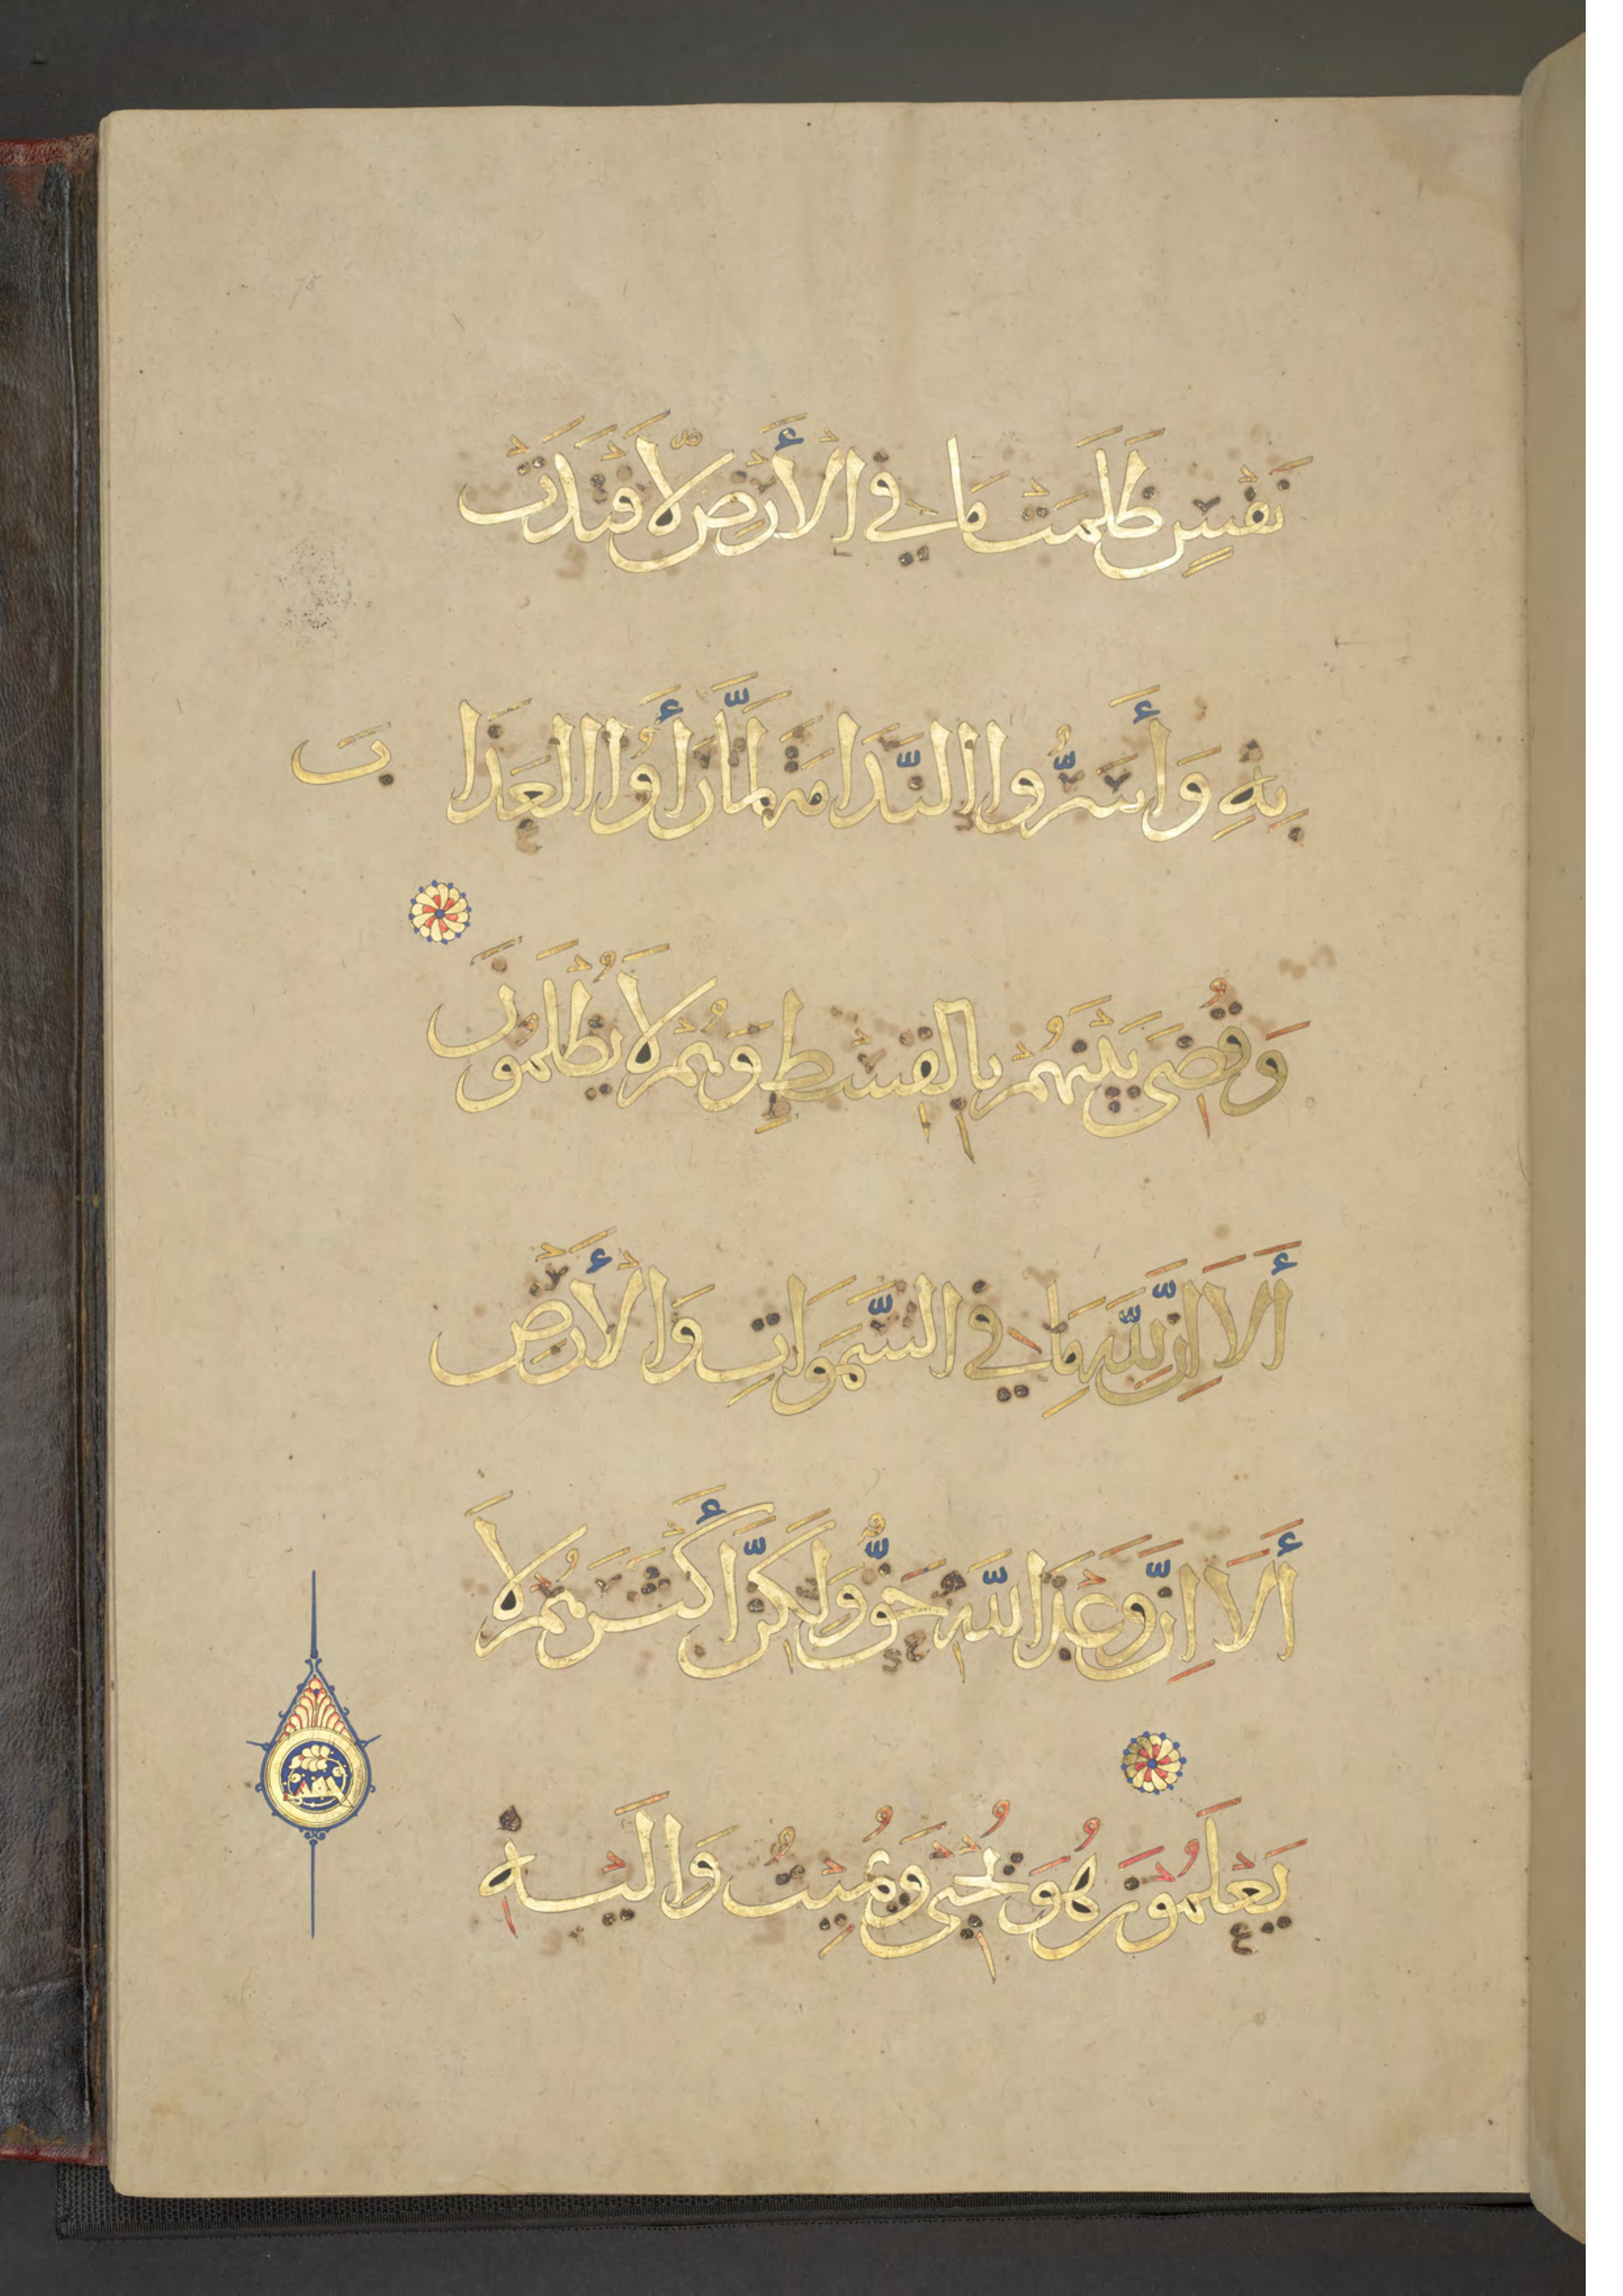 نَفْسٍ ظَلَمَتْ مَا فِي الْأَرْضِ لَافْتَدَتْ
بِهِ وَأَسَرُّوا النَّدَامَةَ لَمَّا رَأَوُا الْعَذَابَ
وَقُضِيَ بَيْنَهُمْ بِالْقِسْطِ وَهُمْ لَا يُظْلَمُونَ
أَلَا إِنَّ لِلَّهِ مَا فِي السَّمَوَاتِ وَالْأَرْضِ
أَلَا إِنَّ وَعْدَ اللَّهِ حَقٌّ وَلَكِنَّ أَكْثَرَهُمْ لَا
يَعْلَمُونَ هُوَ يُحْيِى وَيُمِيتُ وَإِلَيْهِ